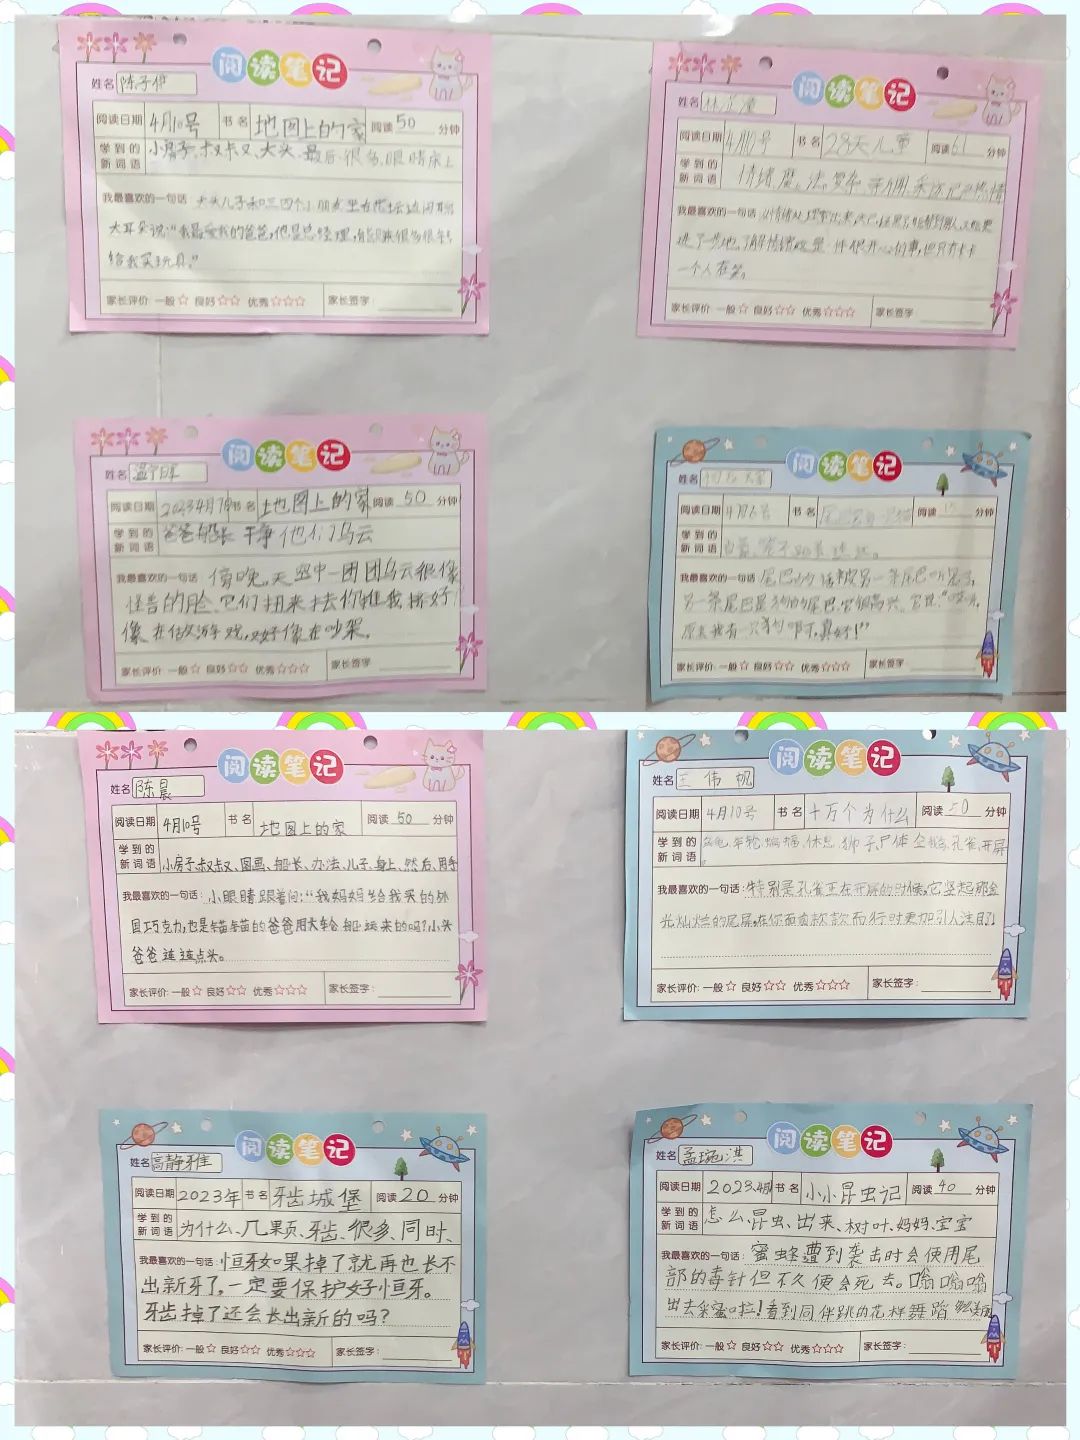 阅读笔记
姓名 陈子伊
阅读日期 4月10号 书名 地图上的家 阅读 50 分钟
学到的新词语 小房子、叔叔又、大头、最后、很多、眼睛床上
我最喜欢的一句话: 大头儿子和三四个小朋友坐在花坛边闲聊
大耳朵说:"我最爱我的爸爸,他是总经理,能赚很多很多钱
给我买玩具。"
家长评价: 一般☆ 良好☆☆ 优秀☆☆☆ 家长签字:
阅读笔记
姓名 林
阅读日期 4月10号 书名 28天儿童 阅读 61 分钟
学到的新词语 情绪、魔、法、
我最喜欢的一句话:
进了一步地、了解情绪 是一件很开心的事,
一个人在笑。
家长评价: 一般☆ 良好☆☆ 优秀☆☆☆ 家长签字:
阅读笔记
姓名
阅读日期 2023年4月7日 书名 地图上的家 阅读 50 分钟
学到的新词语 爸爸 船长 干净 他们 乌云
我最喜欢的一句话: 傍晚,天空中一团团乌云很像
怪兽的脸,它们扭来扭去你推我挤好
像在做游戏,又好像在吵架。
家长评价: 一般☆ 良好☆☆ 优秀☆☆☆ 家长签字:
阅读笔记
姓名
阅读日期 4月6号 书名 阅读 分钟
学到的新词语
我最喜欢的一句话: 尾巴
另一条尾巴是狗狗的尾巴,它很高兴。它说:"哎呀,
原来我有一只狗狗啊,真好!"
家长评价: 一般☆ 良好☆☆ 优秀☆☆☆ 家长签字:
阅读笔记
姓名 陈晨
阅读日期 4月10号 书名 地图上的家 阅读 50 分钟
学到的新词语 小房子、叔叔、图画、船长、办法、儿子、身上、然后、用手
我最喜欢的一句话: 小眼睛跟着问:"我妈妈给我买的外
国巧克力,也是锚锚的爸爸用大轮船运来的吗?"小头
爸爸连连点头。
家长评价: 一般☆ 良好☆☆ 优秀☆☆☆ 家长签字:
阅读笔记
姓名 王伟帆
阅读日期 4月10号 书名 十万个为什么 阅读 50 分钟
学到的新词语 乌龟、年轮、蝙蝠、休息、狮子、尸体、企鹅、孔雀、开屏
我最喜欢的一句话: 特别是孔雀正在开屏的时候,它竖起那金
光灿烂的尾屏,在你面前款款而行时更加引人注目了!
家长评价: 一般☆ 良好☆☆ 优秀☆☆☆ 家长签字:
阅读笔记
姓名 高静雅
阅读日期 2023年 书名 牙齿城堡 阅读 20 分钟
学到的新词语 为什么、几颗、牙齿、很多、同时、
我最喜欢的一句话: 恒牙如果掉了就再也长不
出新牙了,一定要保护好恒牙。
牙齿掉了还会长出新的吗?
家长评价: 一般☆ 良好☆☆ 优秀☆☆☆ 家长签字:
阅读笔记
姓名 孟琬淇
阅读日期 2023.4月 书名 小小昆虫记 阅读 40 分钟
学到的新词语 怎么、昆虫、出来、树叶、妈妈、宝宝
我最喜欢的一句话: 蜜蜂遭到袭击时会使用尾
部的毒针但不久便会死去。嗡嗡嗡
出去采蜜啦!看到同伴跳的花样舞蹈
家长评价: 一般☆ 良好☆☆ 优秀☆☆☆ 家长签字: